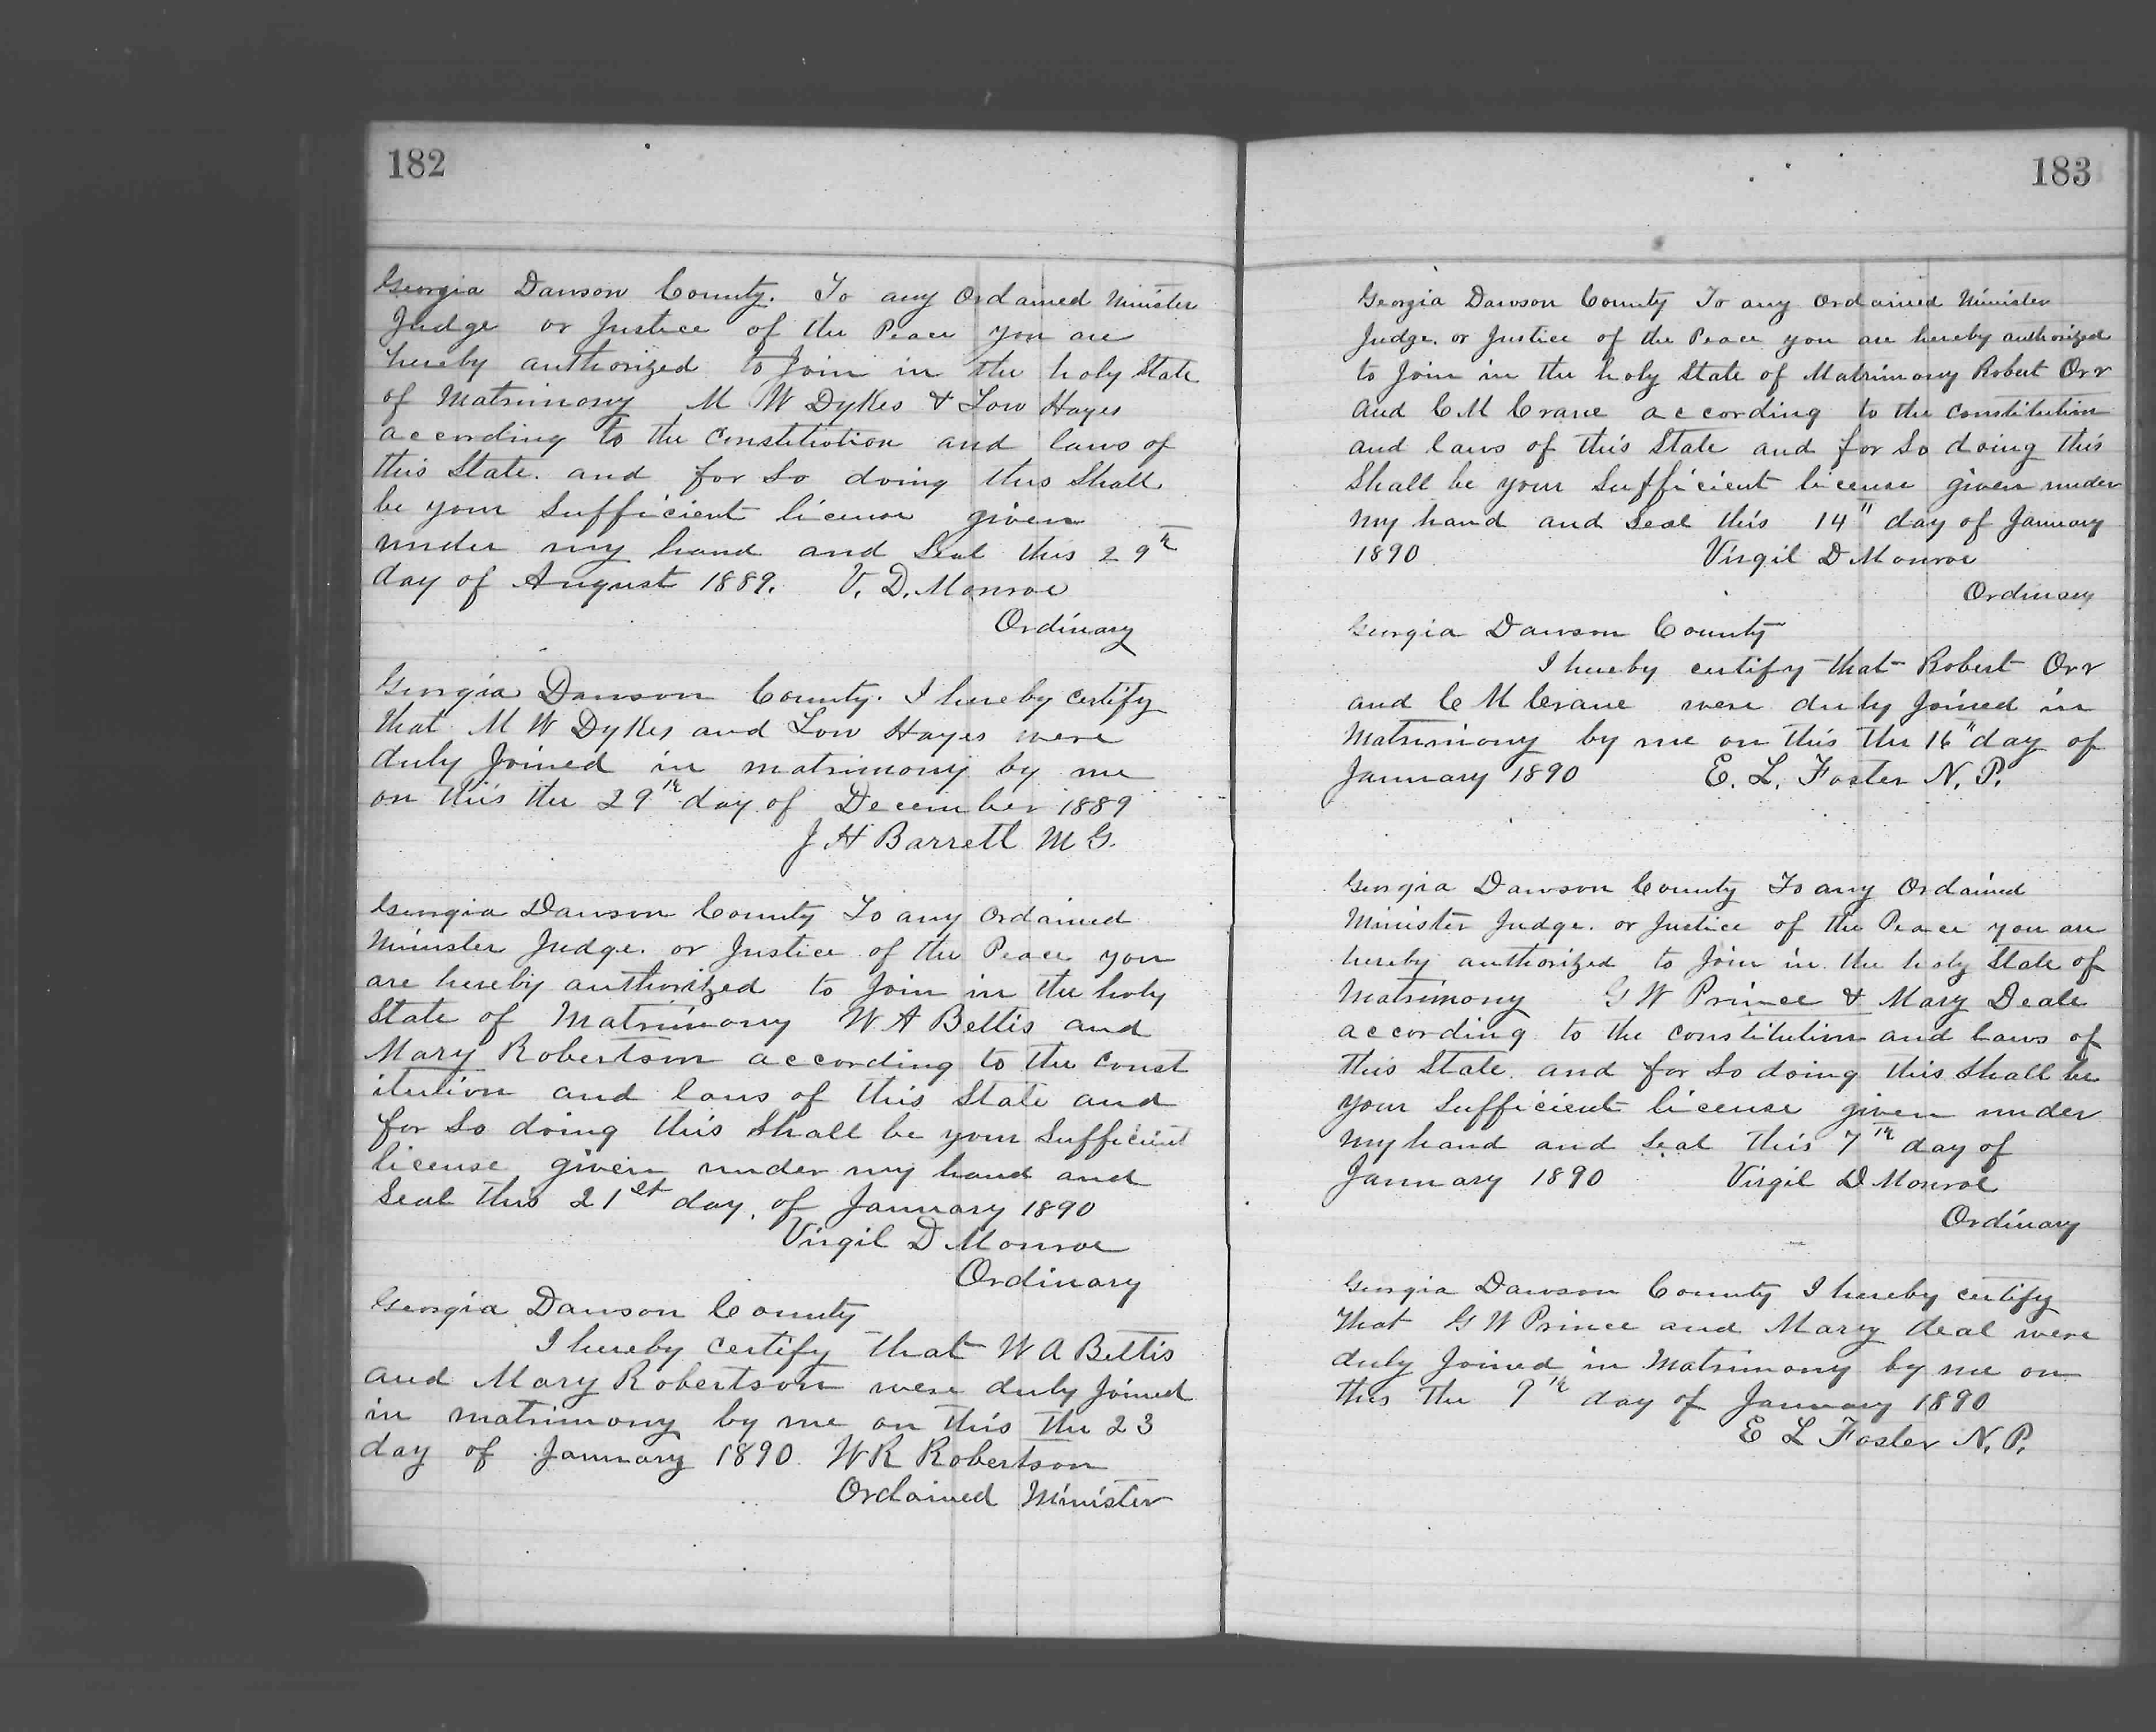 182
Georgia Dawson County. To any Ordained Minister
Judge or Justice of the Peace you are
hereby authorized to Join in the holy State
of Matrimony M W Dykes & Lou Hayes
according to the Constitution and laws of
this State. and for So doing this Shall
be your Sufficient license given
under my hand and Seal this 29th
day of August 1889. V. D. Monroe
Ordinary
Georgia Dawson County. I hereby certify
that M W Dykes and Lou Hayes were
duly Joined in matrimony by me
on this the 29th day of December 1889
J H Barrett M G.
Georgia Dawson County To any Ordained
Minister Judge. or Justice of the Peace you
are hereby authorized to Join in the holy
State of Matrimony W A Bettis and
Mary Robertson according to the Const
itution and laws of this State and
for So doing this Shall be your Sufficient
license given under my hand and
Seal this 21st day. of January 1890
Virgil D Monroe
Ordinary
Georgia Dawson County
I hereby certify that W A Bettis
and Mary Robertson were duly Joined
in matrimony by me on this the 23
day of January 1890. W R Robertson
Ordained Minister
183
Georgia Dawson County To any Ordained Minister
Judge. or Justice of the Peace you are hereby authorized
to Join in the holy State of Matrimony Robert Orr
and C M Crane according to the Constitution
and laws of this State and for So doing this
Shall be your Sufficient license given under
my hand and Seal this 14" day of January
1890 Virgil D Monroe
Ordinary
Georgia Dawson County
I hereby certify that Robert Orr
and C M Crane were duly Joined in
Matrimony by me on this the 16" day of
January 1890 E. L. Foster N. P.
Georgia Dawson County To any Ordained
Minister Judge. or Justice of the Peace you are
hereby authorized to Join in the holy State of
Matrimony G W Prince & Mary Deale
according to the constitution and laws of
this State. and for So doing this Shall be
your Sufficient license given under
my hand and Seal this 7th day of
January 1890 Virgil D Monroe
Ordinary
Georgia Dawson County I hereby certify
that G W Prince and Mary deal were
duly Joined in Matrimony by me on
this the 9th day of January 1890
E L Foster N. P.